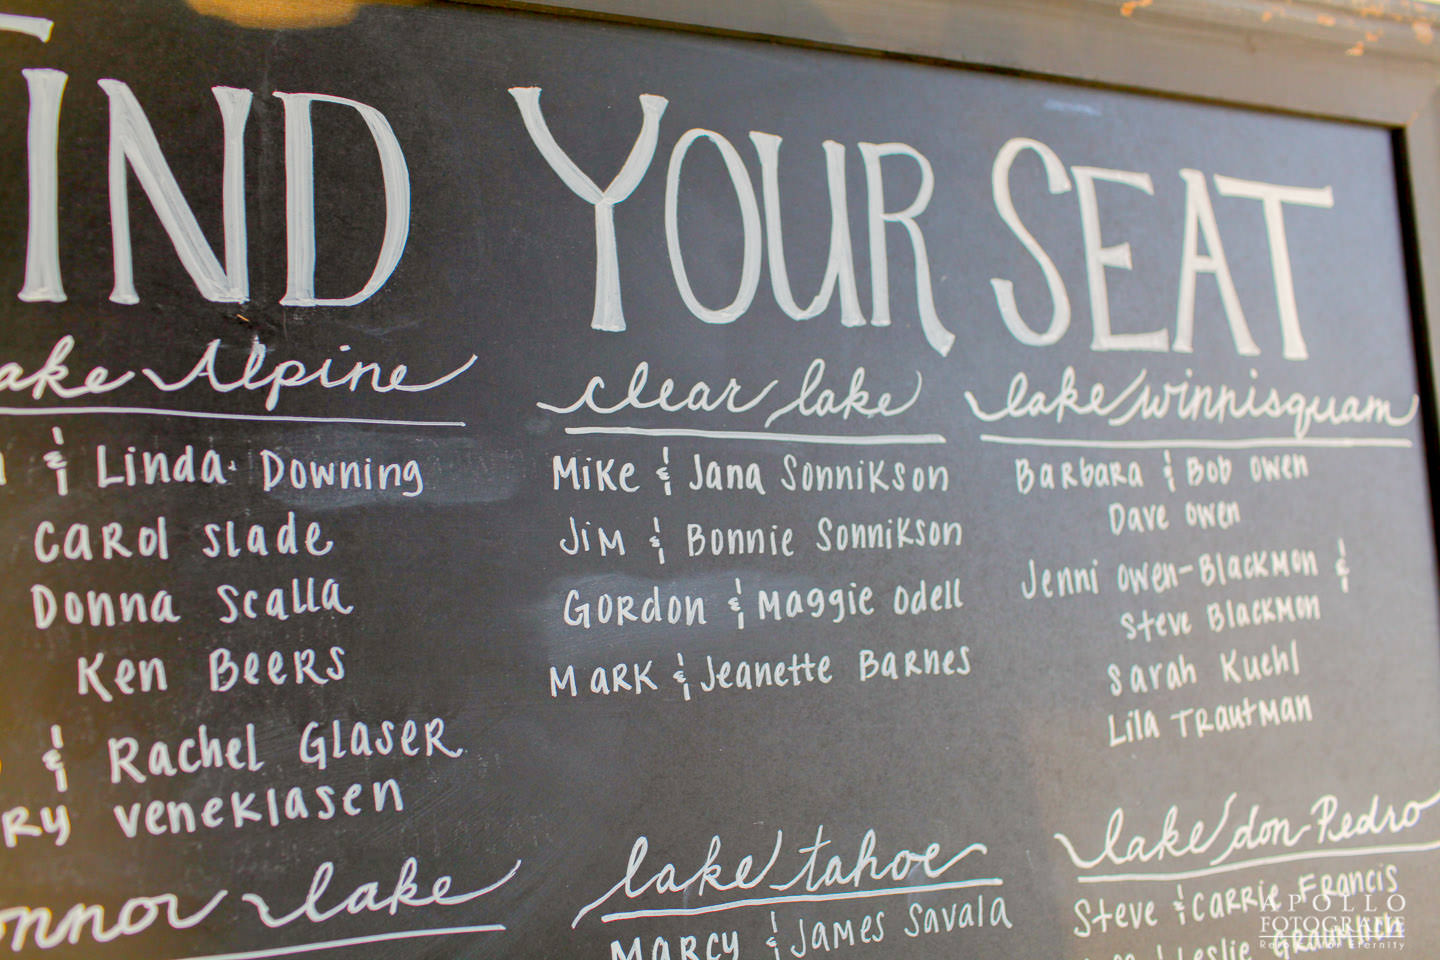 FIND YOUR SEAT
Lake Alpine
& Linda Downing
Carol Slade
Donna Scalla
Ken Beers
& Rachel Glaser
Veneklasen
Lake
Clear Lake
Mike & Jana Sonnikson
Jim & Bonnie Sonnikson
Gordon & Maggie Odell
Mark & Jeanette Barnes
Lake Tahoe
Marcy & James Savala
Lake Winnisquam
Barbara & Bob Owen
Dave Owen
Jenni Owen-Blackmon &
Steve Blackmon
Sarah Kuehl
Lila Trautman
Lake Don Pedro
Steve & Carrie Francis
& Leslie
APOLLO
FOTOGRAFIE